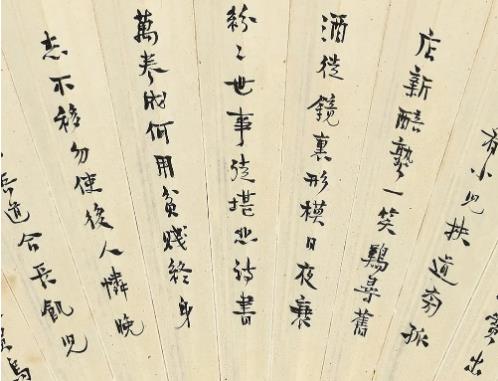 有小兒扶道旁孤
店新醅熟一笑鷄尋舊
酒徒鏡裏形模日夜衰
紛〻世事徒堪悲詩書
萬卷成何用貧賤終身
志不移勿使後人憐晚
吾道合長飢兒